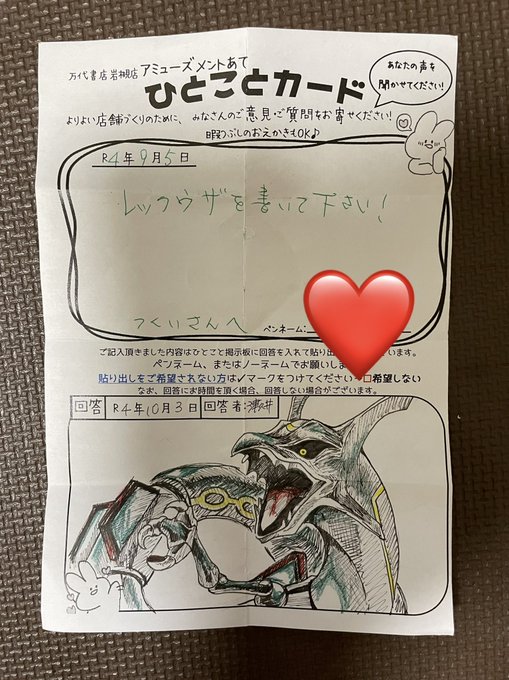 万代書店岩槻店 アミューズメントあて
ひとことカード
あなたの声を
聞かせてください!
よりよい店舗づくりのために、みなさんのご意見・ご質問をお寄せください!
暇つぶしのおえかきもOK♪
R4年9月5日
レックウザを書いて下さい!
つくいさんへ
ペンネーム:
ご記入頂きました内容はひとこと掲示板に回答を入れて貼り出
います。
ペンネーム、またはノーネームでお願いしま
貼り出しをご希望されない方は✓マークをつけてください
□希望しない
なお、回答にお時間を頂く場合、回答しない場合がございます。
回答 R4年10月3日 回答者:津久井